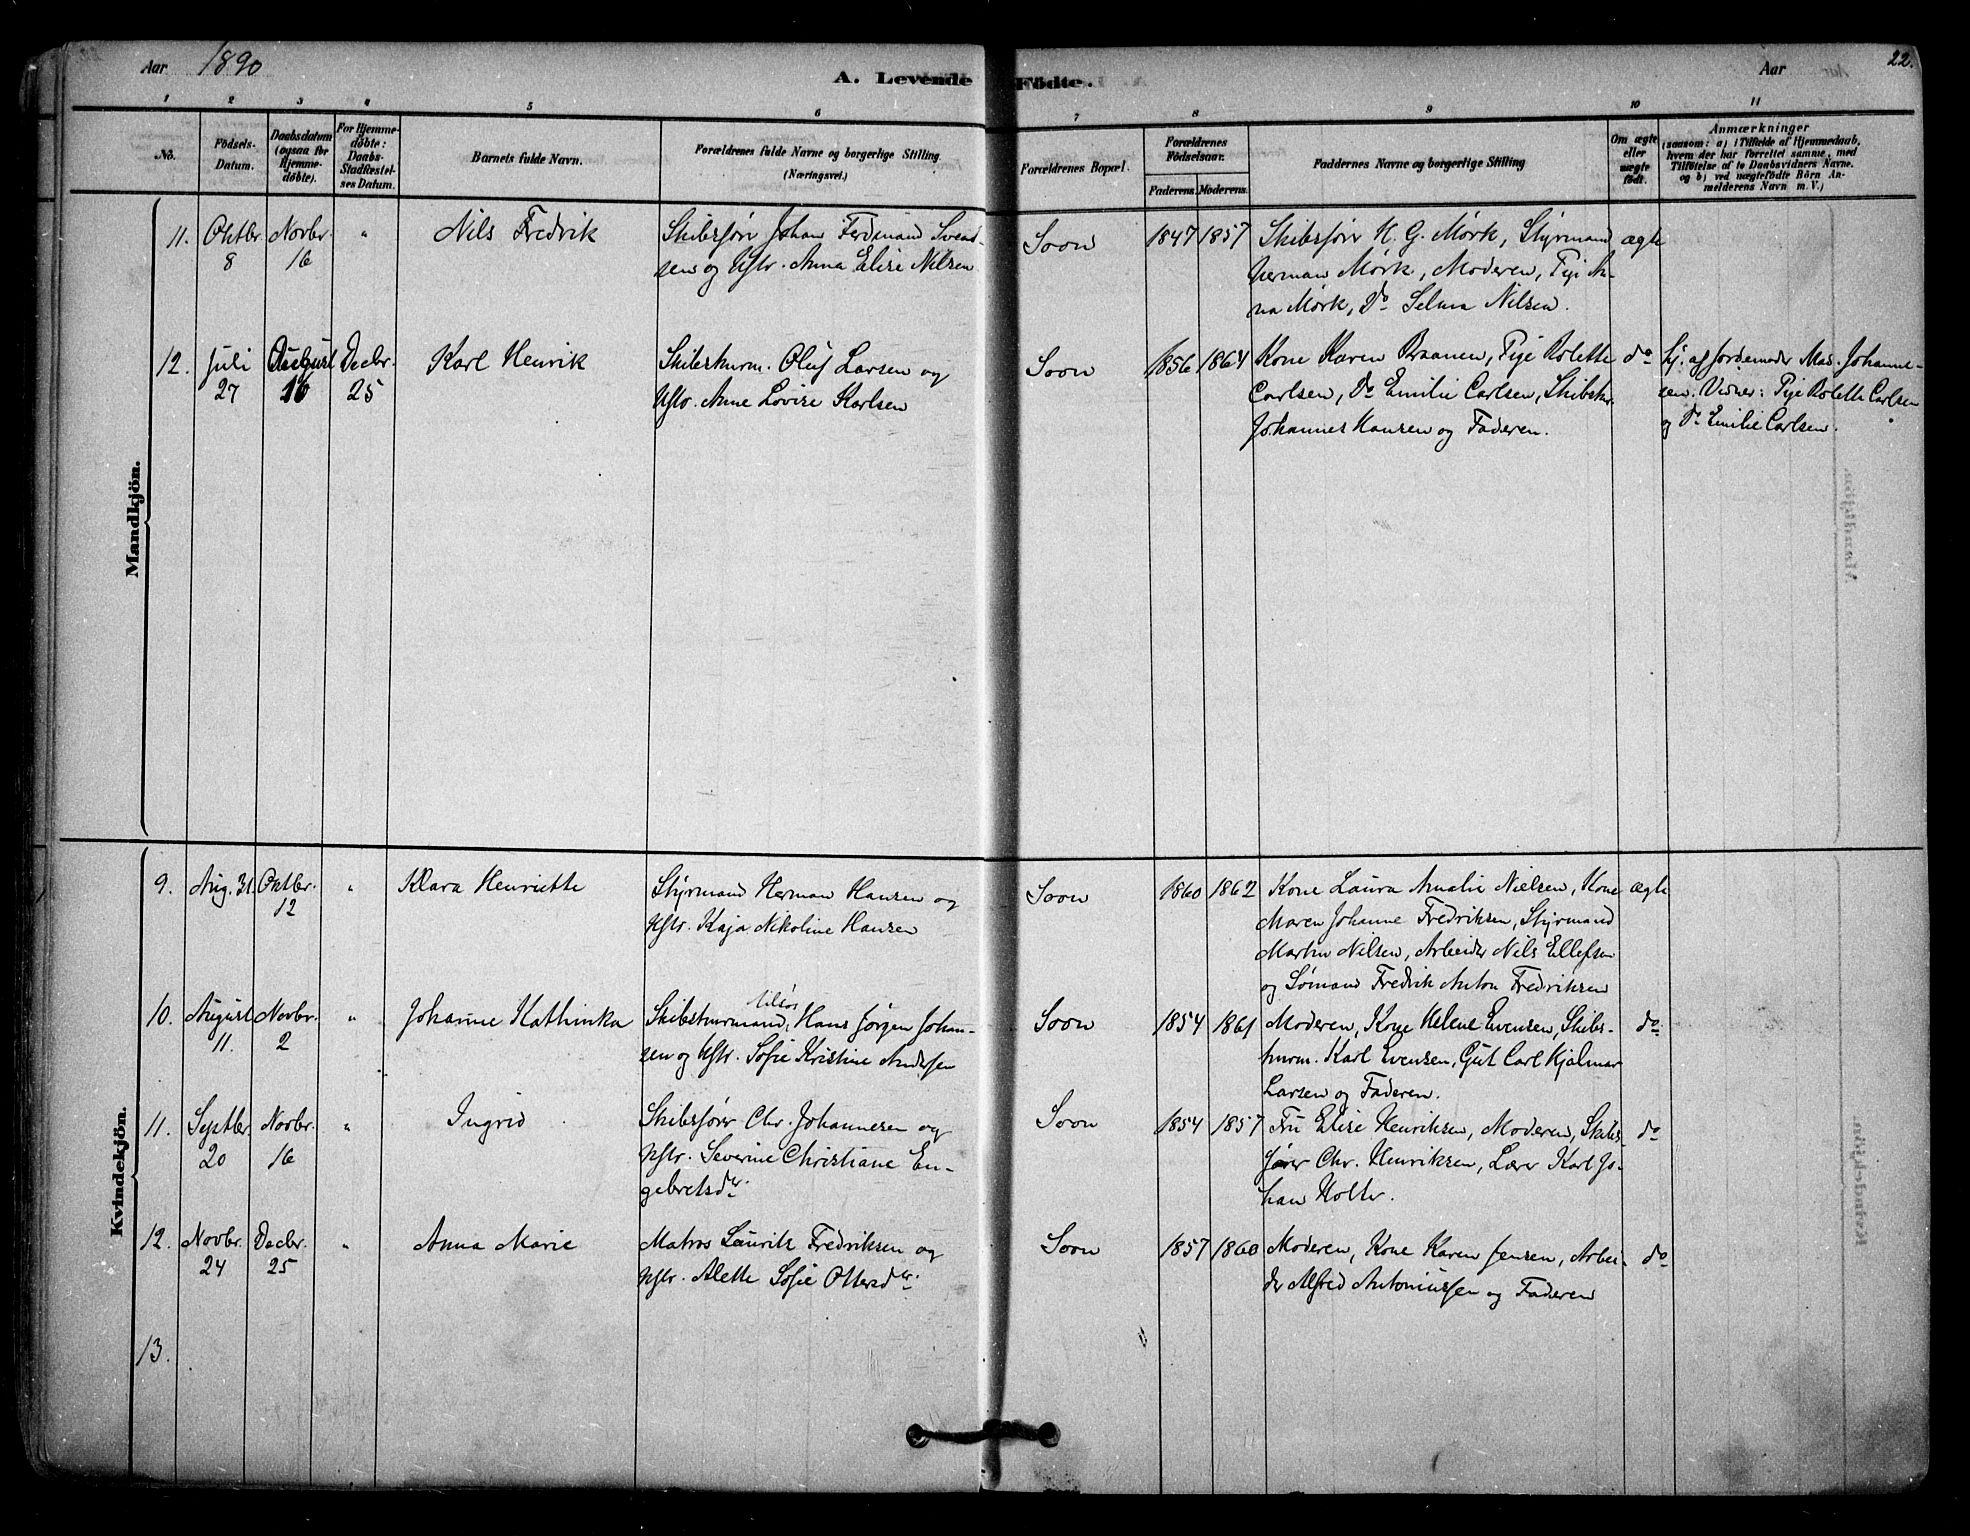 Aar 1890
A. Levende Födte.
Aar
22.
1 2 3 4 5 6 7 8 9 10 11
No.
Födsels-
Datum.
Daabsdatum
(ogsaa for
Hjemme-
døbte).
For Hjemme-
døbte:
Daabs-
Stadfæstel-
ses Datum.
Barnets fulde Navn.
Forældrenes fulde Navne og borgerlige Stilling
(Næringsvei.)
Forældrenes Bopæl.
Forældrenes
Födselsaar.
Faderens. Moderens.
Faddernes Navne og borgerlige Stilling
Om ægte
eller
uægte
født.
Anmærkninger
(saasom: a) i Tilfælde af Hjemmedaab,
hvem der har forrettet samme, med
Tilföielse af to Daabsvidners Navne.
og b) ved uægtefödte Börn An-
melderens Navn m. V.)
Mandkjön.
11. Oktbr. 8 Novbr. 16 " Nils Fredrik
Skibsfører Johan Ferdinand Svend-
sen og Hstr. Anna Elise Nilsen
Soon 1847 1857
Skibsfører H. G. Mørk, Styrmand
Herman Mørk, Moderen, Pige An-
na Mørk, do Selma Nilsen.
ægte
12. Juli 27 August 10 Decbr. 25 Karl Henrik
Skibstürm. Oluf Larsen og
Hstr. Anne Lovise Karlsen
Soon 1856 1864
Kone Karen Braanen, Pige Rolette
Carlsen, do Emilie Carlsen, Skibstür.
Johannes Hansen og Faderen.
do
hj. af Jordemoder Mad. Johanne-
sen. Vidner: Pige Rolette Carlsen
og do Emilie Carlsen.
Kvindekjön.
9. Aug. 31 Oktbr. 12 " Klara Henriette
Styrmand Herman Hansen og
Hstr. Kaja Nikoline Hansen
Soon 1860 1862
Kone Laura Amalie Nielsen, Kone
Maren Johanne Fredriksen, Styrmand
Martin Nilsen, Arbeider Nils Ellefsen
og Sømand Fredrik Anton Fredriksen
ægte
10. August 11. Novbr. 2 " Johanne Kathinka
Skibstürmand, tilsøs Hans Jørgen Johan-
sen og Hstr. Sofie Kristine Andersen
Soon 1854 1861
Moderen, Kone Helene Evensen, Skibs-
türm. Karl Evensen, Gut Carl Hjalmar
Larsen og Faderen.
do
11. Septbr. 20 Novbr. 16 " Ingrid
Skibsfører Chr. Johannesen og
Hstr. Severine Christiane En-
gebretsdtr.
Soon 1854 1857
Fru Elise Henriksen, Moderen, Skibs-
fører Chr. Henriksen, Lærer Karl Jo-
han Holter.
do
12. Novbr. 24 Decbr. 25 " Anna Marie
Matros Lauritz Fredriksen og
Hstr. Alette Sofie Ottersdtr.
Soon 1857 1860
Moderen, Kone Karen Jensen, Arbei-
der Alfred Antoniussen og Faderen
do
13.